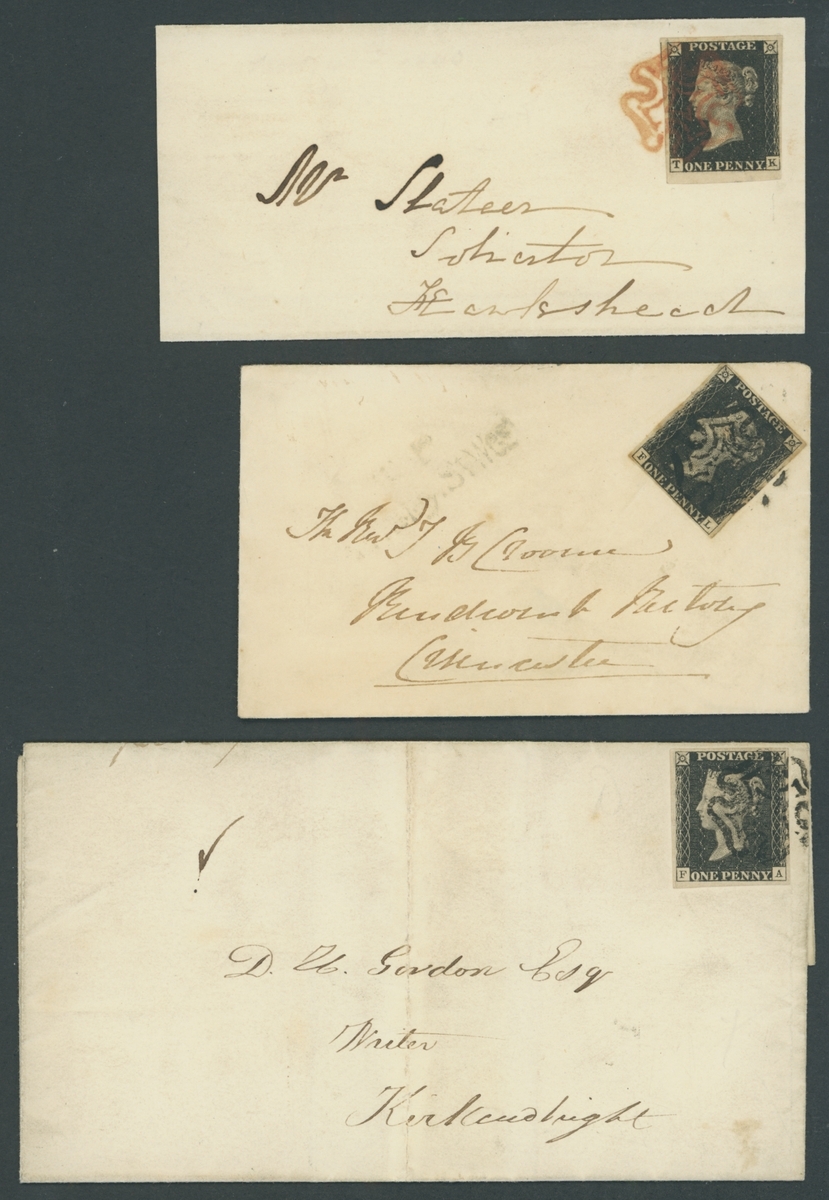 POSTAGE
T ONE PENNY K
Mr Slateer
Solicitor
Hawkshead
POSTAGE
F ONE PENNY L
The Revd T B Croome
Rendcomb Rectory
Cirencester
POSTAGE
F ONE PENNY A
D. H. Gordon Esq
Writer
Kirkcudbright